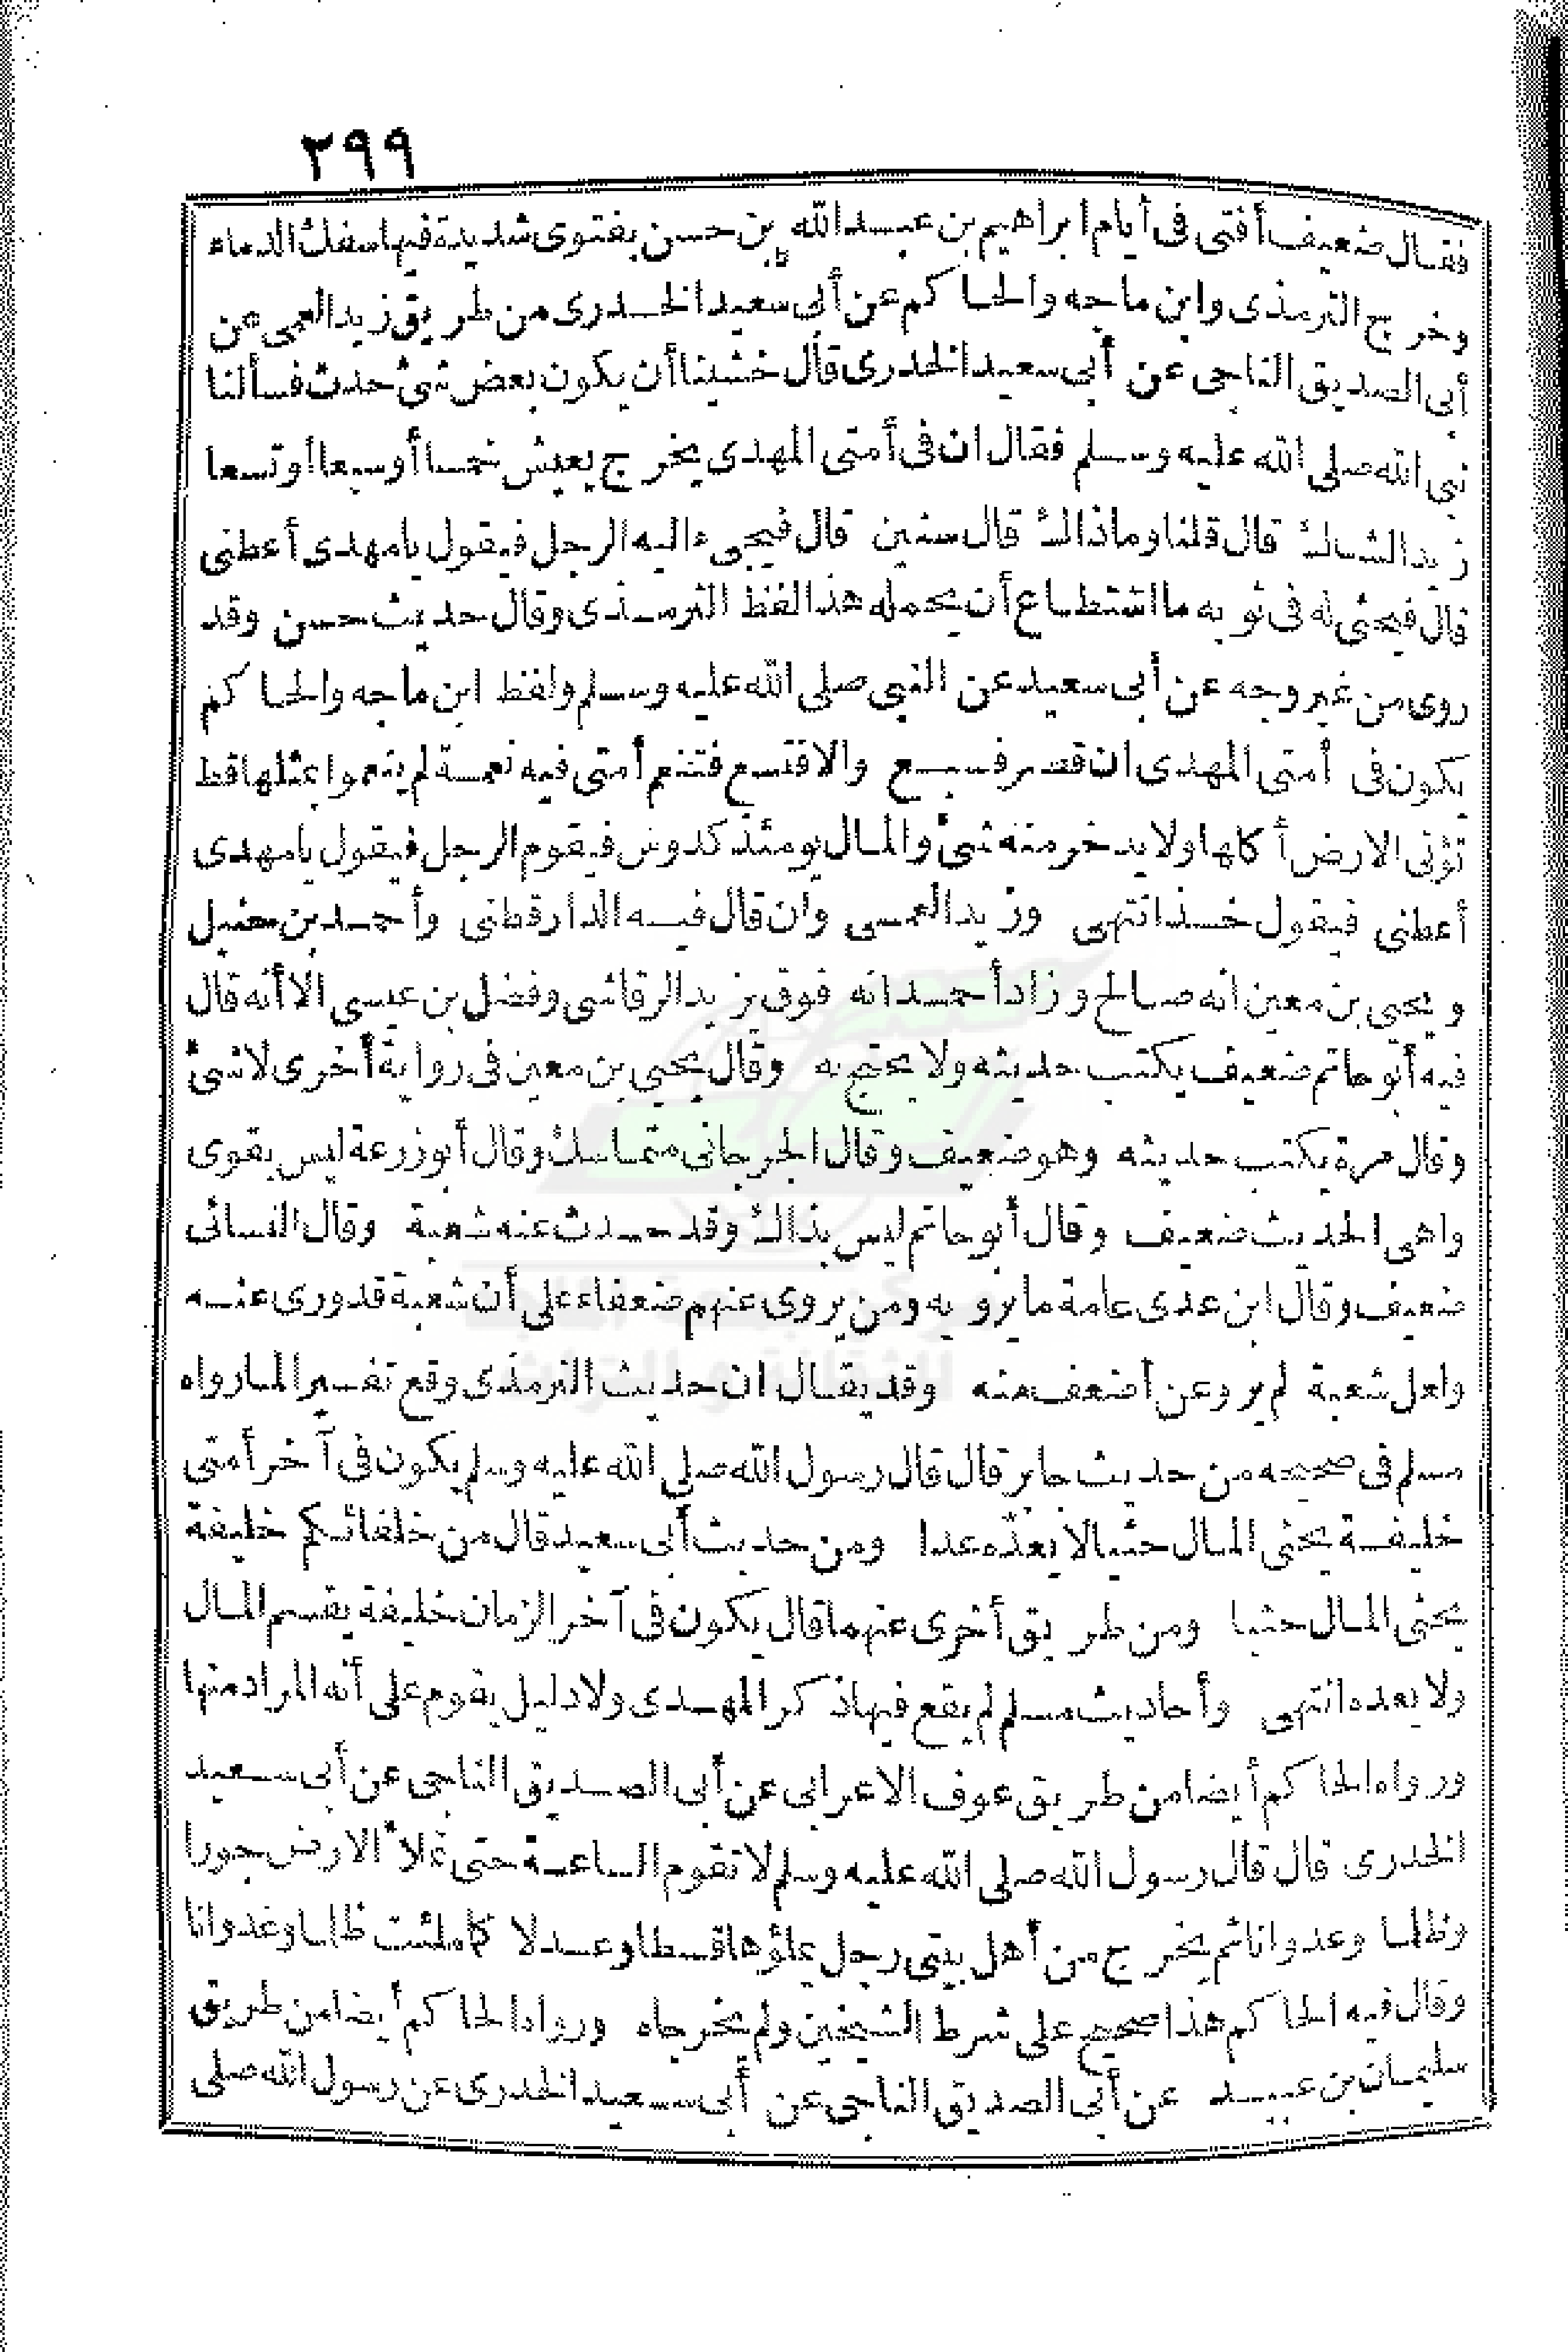 ٢٩٩
فقال ضعيف أفتى فى أيام ابراهيم بن عبد الله بن حسن بفتوى شديدة فيها سفك الدماء
وخرج الترمذى وابن ماجه والحاكم عن أبى سعيد الخدرى من طريق زيد العمى عن
أبى الصديق الناجى عن أبي سعيد الخدرى قال خشينا أن يكون بعض شئ حدث فسألنا
نبى الله صلى الله عليه وسلم فقال ان فى أمتى المهدى يخرج يعيش خمسا أو سبعا أو تسعا
زيد الشاك قال قلنا وما ذاك قال سنين قال فيجىء اليه الرجل فيقول يا مهدى أعطنى
قال فيحثى له فى ثوبه ما استطاع أن يحمله هذا لفظ الترمذى وقال حديث حسن وقد
روى من غير وجه عن أبى سعيد عن النبى صلى الله عليه وسلم ولفظ ابن ماجه والحاكم
يكون فى أمتى المهدى ان قصر فسبع والا فتسع فتنعم أمتى فيه نعمة لم ينعموا بمثلها قط
تؤتى الارض أكلها ولا يدخر منه شئ والمال يومئذ كدوس فيقوم الرجل فيقول يا مهدى
أعطنى فيقول خذ انتهى وزيد العمى وان قال فيه الدارقطنى وأحمد بن حنبل
ويحيى بن معين انه صالح وزاد أحمد انه فوق يزيد الرقاشى وفضل بن عيسى الا أنه قال
فيه أبو حاتم ضعيف يكتب حديثه ولا يحتج به وقال يحيى بن معين فى رواية أخرى لا شئ
وقال مرة يكتب حديثه وهو ضعيف وقال الجرجانى متماسك وقال أبو زرعة ليس بقوى
واهى الحديث ضعيف وقال أبو حاتم ليس بذاك وقد حدث عنه شعبة وقال النسائى
ضعيف وقال ابن عدى عامة ما يرويه ومن يروى عنهم ضعفاء على أن شعبة قد روى عنه
ولعل شعبة لم يرو عن أضعف منه وقد يقال ان حديث الترمذى وقع تفسيرا لما رواه
مسلم فى صحيحه من حديث جابر قال قال رسول الله صلى الله عليه وسلم يكون فى آخر أمتى
خليفة يحثى المال حثيا لا يعدّه عدا ومن حديث أبى سعيد قال من خلفائكم خليفة
يحثى المال حثيا ومن طريق أخرى عنهما قال يكون فى آخر الزمان خليفة يقسم المال
ولا يعده انتهى وأحاديث مسلم لم يقع فيها ذكر المهدى ولا دليل يقوم على أنه المراد منها
ورواه الحاكم أيضا من طريق عوف الاعرابى عن أبى الصديق الناجى عن أبى سعيد
الخدرى قال قال رسول الله صلى الله عليه وسلم لا تقوم الساعة حتى تملأ الارض جورا
وظلما وعدوانا ثم يخرج من أهل بيتى رجل يملؤها قسطا وعدلا كما ملئت ظلما وعدوانا
وقال فيه الحاكم هذا صحيح على شرط الشيخين ولم يخرجاه ورواه الحاكم أيضا من طريق
سليمان بن عبيد عن أبى الصديق الناجى عن أبى سعيد الخدرى عن رسول الله صلى